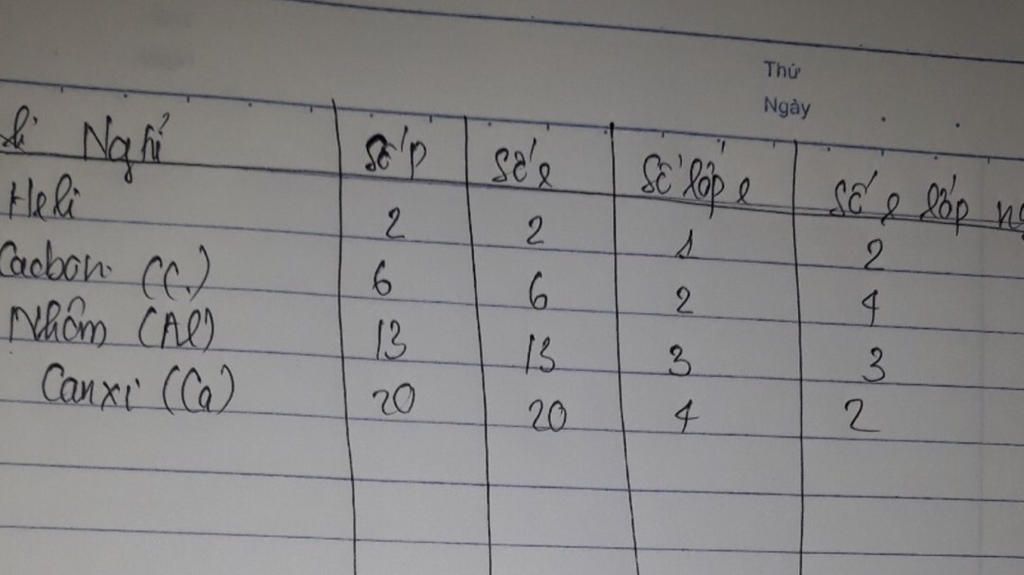 Thứ
Ngày
Nghĩ Số p Số e Số lớp e Số e lớp
Heli 2 2 1 2
Cacbon (C.) 6 6 2 4
Nhôm (Al) 13 13 3 3
Canxi (Ca) 20 20 4 2